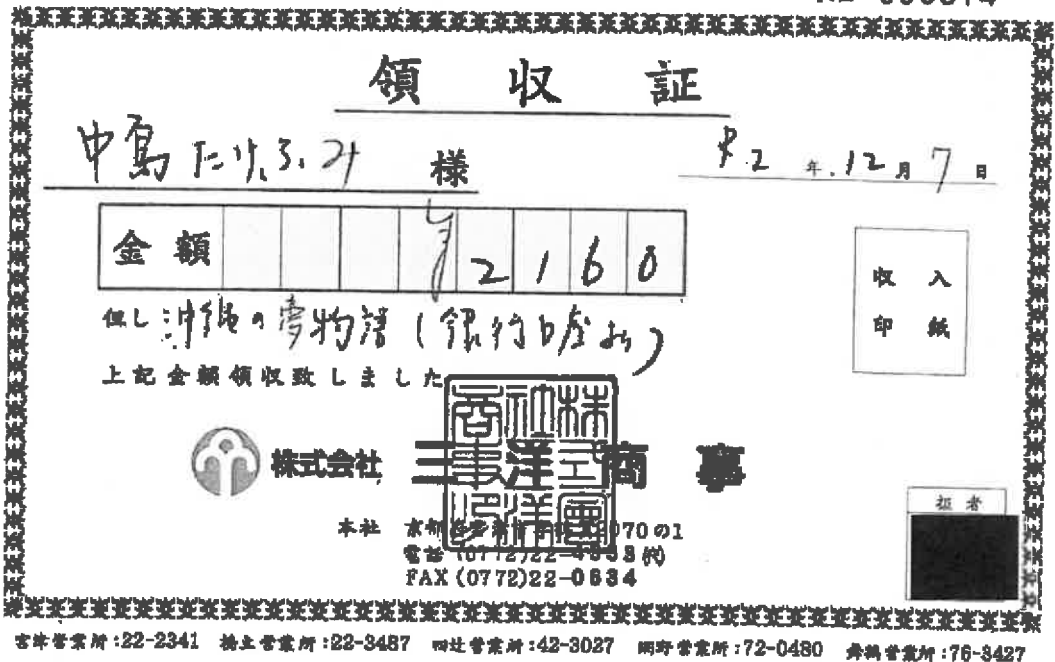 領収証
中島たけふみ 様
R2年.12月7日
金額 ¥2160
但し 沖縄の夢物語(銀行口座払)
収入
印紙
上記金額領収致しました
株式会社 三洋商事
担者
本社 京都 070の1
電話 (0772)22- (代)
FAX (0772)22-0834
宮津営業所:22-2341 橋立営業所:22-3487 四辻営業所:42-3027 網野営業所:72-0480 舞鶴営業所:76-3427